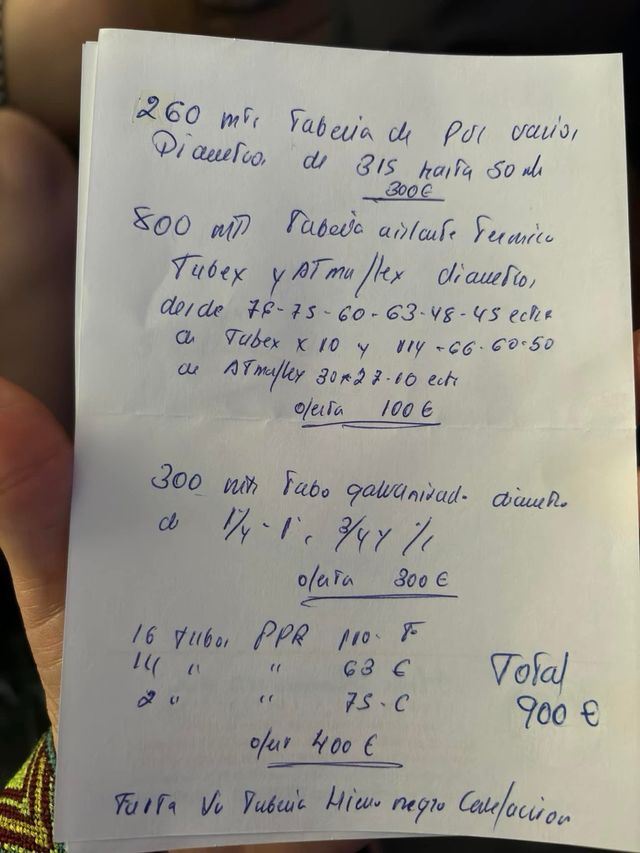 260 mts Tuberia de PVC varios
Diametros de 315 hasta 50 mm
300€
800 mts Tuberia aislante Termico
Tubex y ATmaflex diametros
desde 76-75-60-63-48-45 ectr
de Tubex x 10 y 114-66-60-50
de ATmaflex 30x27-10 ectr
oferta 100 €
300 mts Tubo galvanizado diametro
de 1 1/4 - 1", 3/4 y
oferta 300 €
16 Tubos PPR 110- F
14 " " 63 €
2 " " 75-C
ofer 400 €
Total
900 €
Falta Tuberia Hierro negro Calefaccion